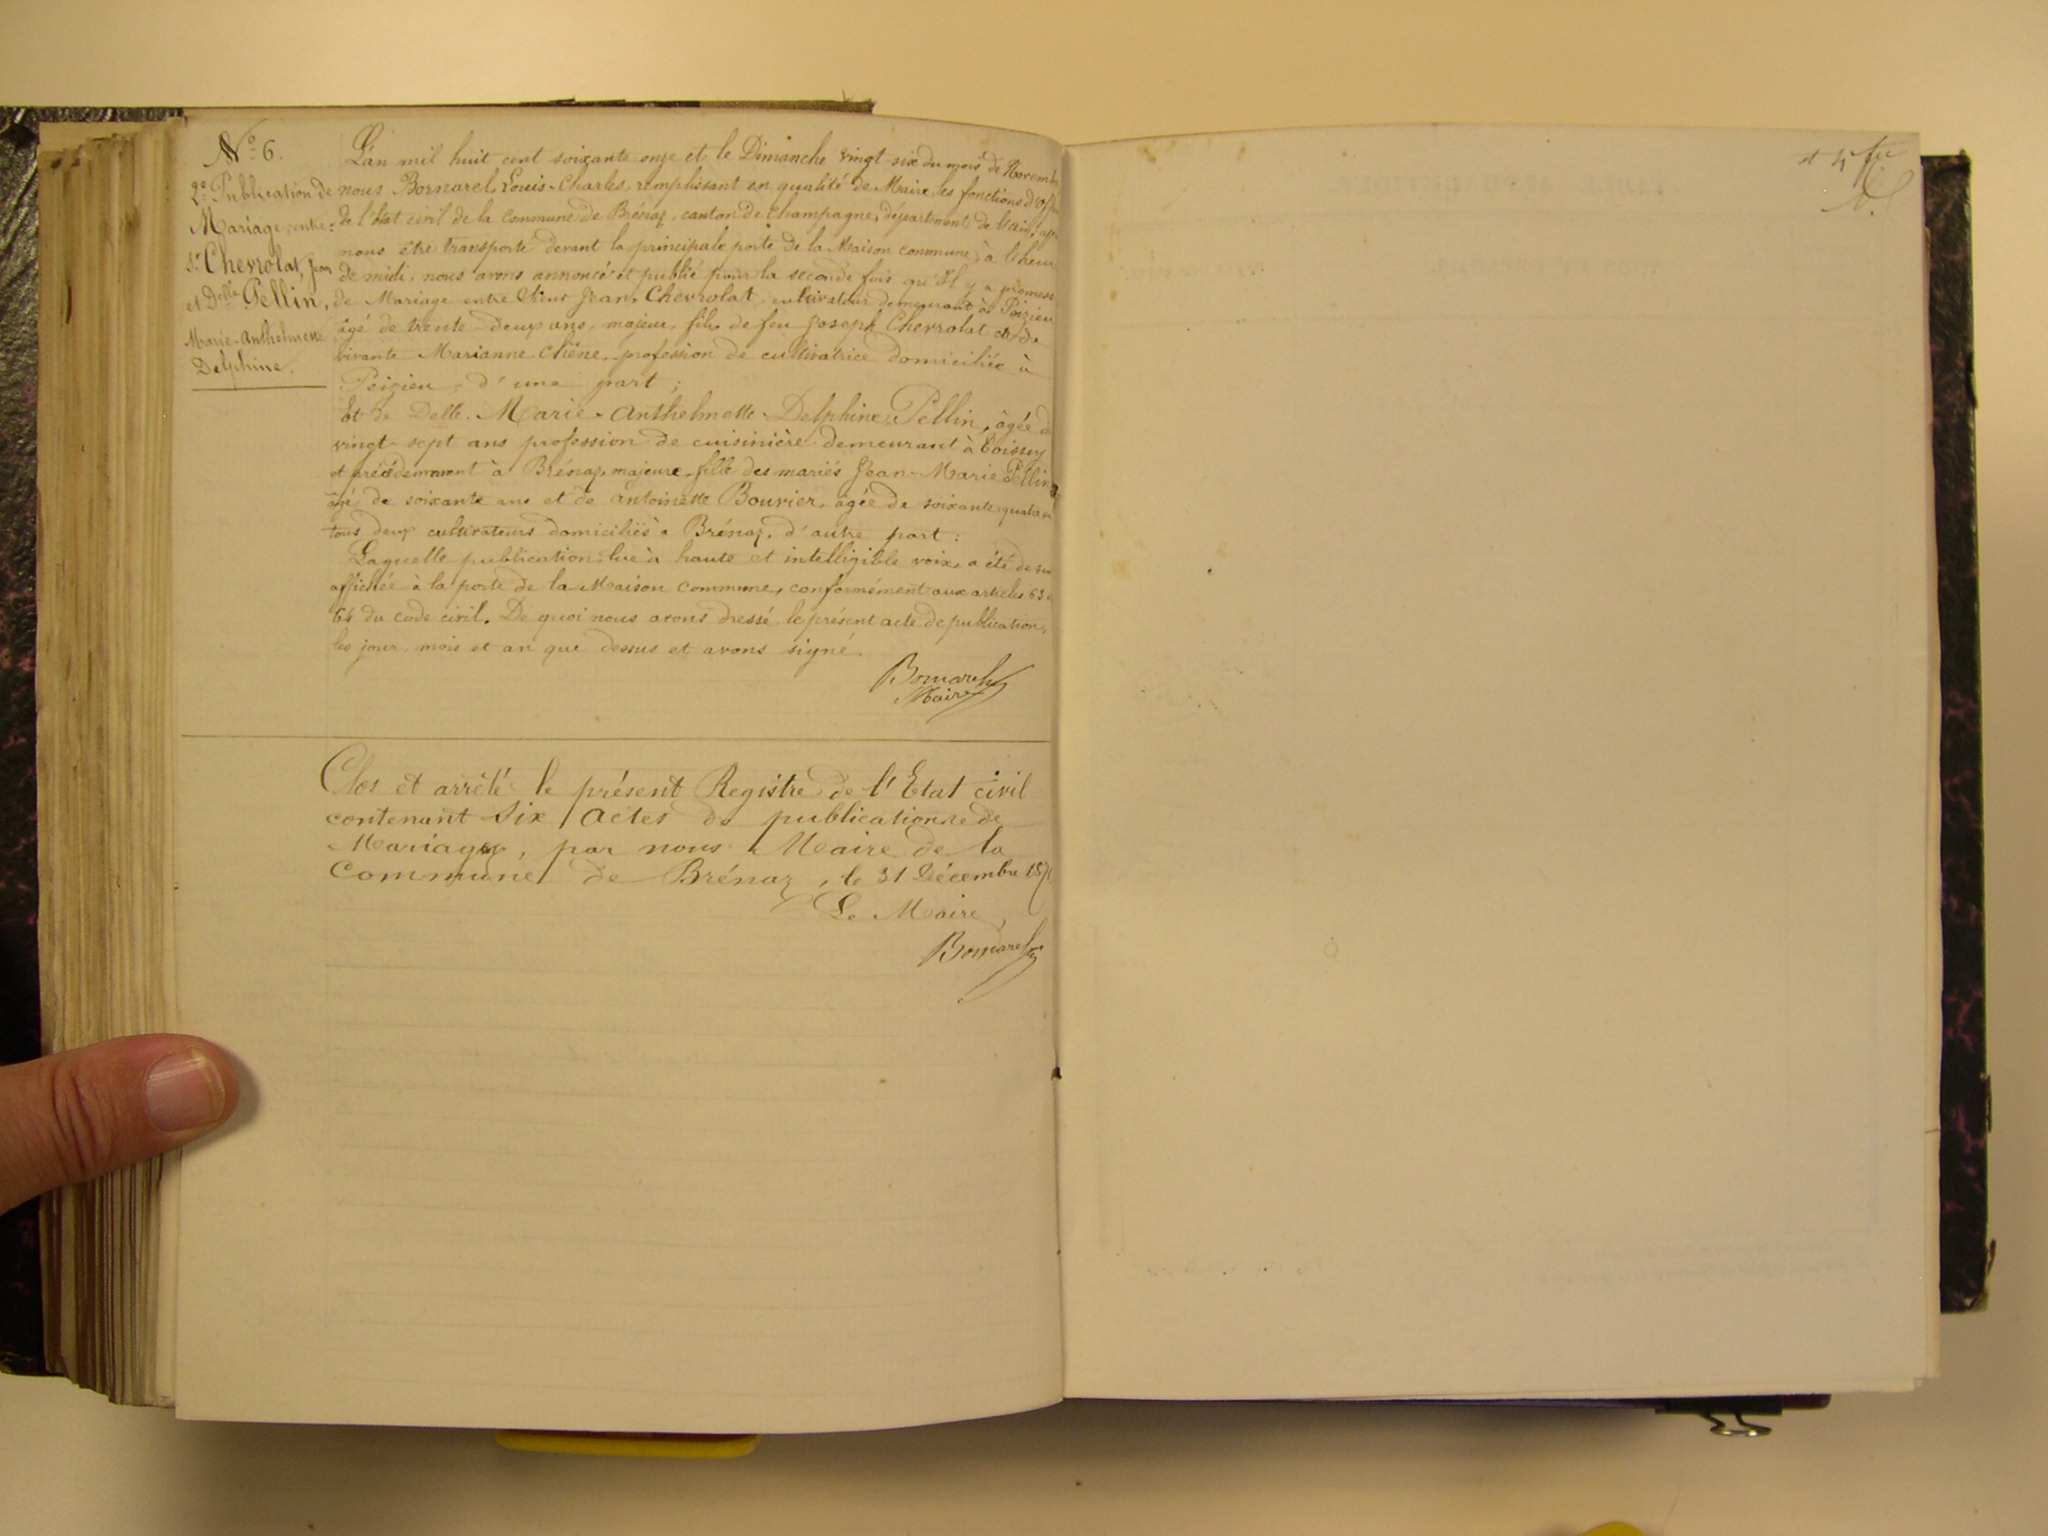 N° 6.
2e Publication de
Mariage entre :
Sr Chevrolat, Jean
et Delle Pellin,
Marie-Anthelmette
Delphine.
L'an mil huit cent soixante onze et le Dimanche vingt six du mois de Novemb
nous Bornarel, Louis-Charles, remplissant en qualité de Maire les fonctions d'Offi
de l'état civil de la commune de Brénaz, canton de Champagne, département de l'ain, ap
nous être transporté devant la principale porte de la Maison commune, à l'heu
de midi, nous avons annoncé et publié pour la seconde fois qu'Il y a promess
de Mariage entre Jean Chevrolat, cultivateur demeurant à Peizieu
âgé de trente-deux ans, majeur, fils de feu Joseph Chevrolat et de
vivante Marianne Chêne, profession de cultivatrice domiciliée à
Peizieu, d'une part ;
Et de Delle. Marie-Anthelmette-Delphine Pellin, âgée d
vingt-sept ans profession de cuisinière demeurant à Thoissey
et précédemment à Brénaz, majeure, fille des mariés Jean-Marie Pellin
âgé de soixante ans et de Antoinette Bouvier, âgée de soixante quatre
tous deux cultivateurs domiciliés à Brénaz, d'autre part :
Laquelle publication, lue à haute et intelligible voix, a été de su
affichée à la porte de la Maison commune, conformément aux articles 63 e
64 du code civil. De quoi nous avons dressé le présent acte de publication,
les jour, mois et an que dessus et avons signé.
Bornarel
Maire
Clos et arrêté le présent Registre de l'Etat civil
contenant Six Actes de publications de
Mariages, par nous Maire de la
Commune de Brénaz, le 31 Décembre 1871
Le Maire,
Bornarel